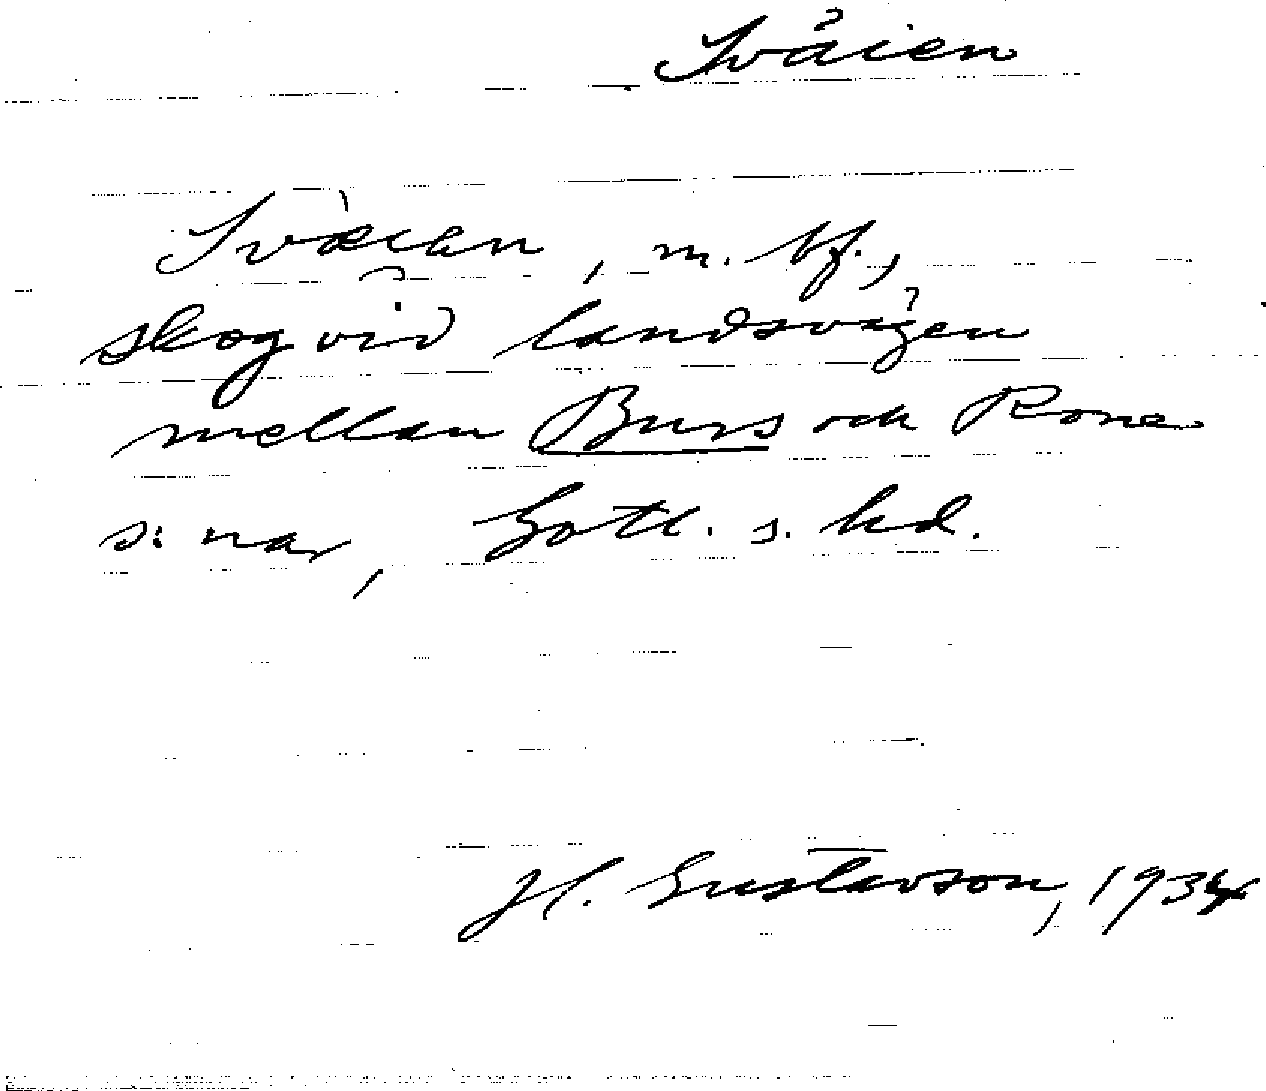 Svåien
Svàien, m. bf.,
skog vid landsvägen
mellan Burs och Rone
s:nar, Gotl. s. hd.
H. Gustavson, 1934